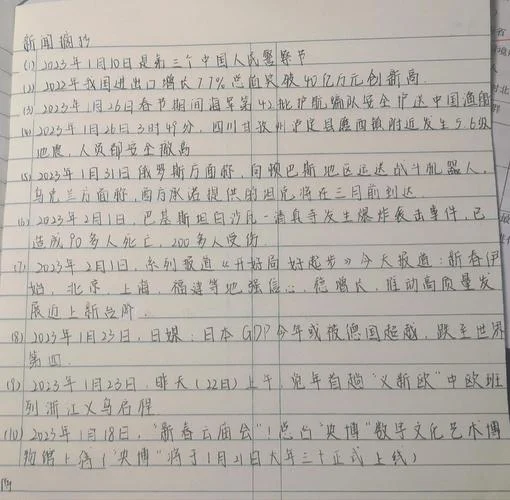 新闻摘抄
(1) 2023年1月10日是第三个中国人民警察节
(2) 2022年我国进出口增长7.7% 总值突破40亿万元创新高
(3) 2023年1月26日春节期间海军第42批护航编队安全护送中国渔船
(4) 2023年1月26日3时49分，四川甘孜州泸定县磨西镇附近发生5.6级
地震，人员都安全撤离
(5) 2023年1月31日俄罗斯方面称，向顿巴斯地区运送战斗机器人，
乌克兰方面称，西方承诺提供的坦克将在三月前到达.
(6) 2023年2月1日，巴基斯坦白沙瓦一清真寺发生爆炸袭击事件，已
造成90多人死亡，200多人受伤
(7) 2023年2月1日，系列报道《开好局 好起步》今天报道：新春伊
始，北京、上海、福建等地强信心、稳增长、推动高质量发
展迈上新台阶.
(8) 2023年1月23日，日媒：日本GDP今年或被德国超越，跌至世界
第四.
(9) 2023年1月23日，昨天(22日)上午，兔年首趟"义新欧"中欧班
列浙江义乌启程
(10) 2023年1月18日，"新春云庙会"！总台"央博"数字文化艺术博
物馆上 ("央博"将于1月21日大年三十正式上线)